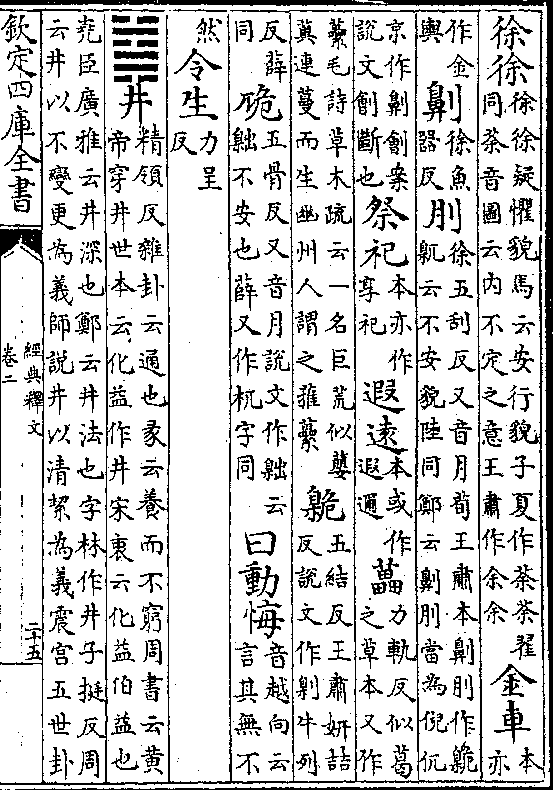 徐徐徐徐疑懼貌馬云安行貌子夏作荼荼翟同荼音圖云内不定之意王肅作余余金車本亦
作金輿劓徐魚器反刖徐五刮反又音月荀王肅本劓刖作臲云不安貌陸同鄭云劓刖當為倪㐳
京作劓劊案說文劊斷也祭祀本亦作享祀遐遠本或作遐邇藟力軌反似葛之草本又作
蘽毛詩草木疏云一名巨荒似蘡薁連蔓而生幽州人謂之蓷蘽臲五結反王肅妍喆反說文作劓牛列
反薛同五骨反又音月說文作云不安也薛又作杌字同曰動悔音越向云言其無不
然令生力呈反
䷯井精領反雜卦云通也彖云養而不窮周書云黄帝穿井世本云化益作井宋衷云化益伯益也
堯臣廣雅云井深也鄭云井法也字林作井子挺反周云井以不變更為義師說井以清絜為義震宮五世卦
欽定四庫全書
經典釋文
卷二
二十五